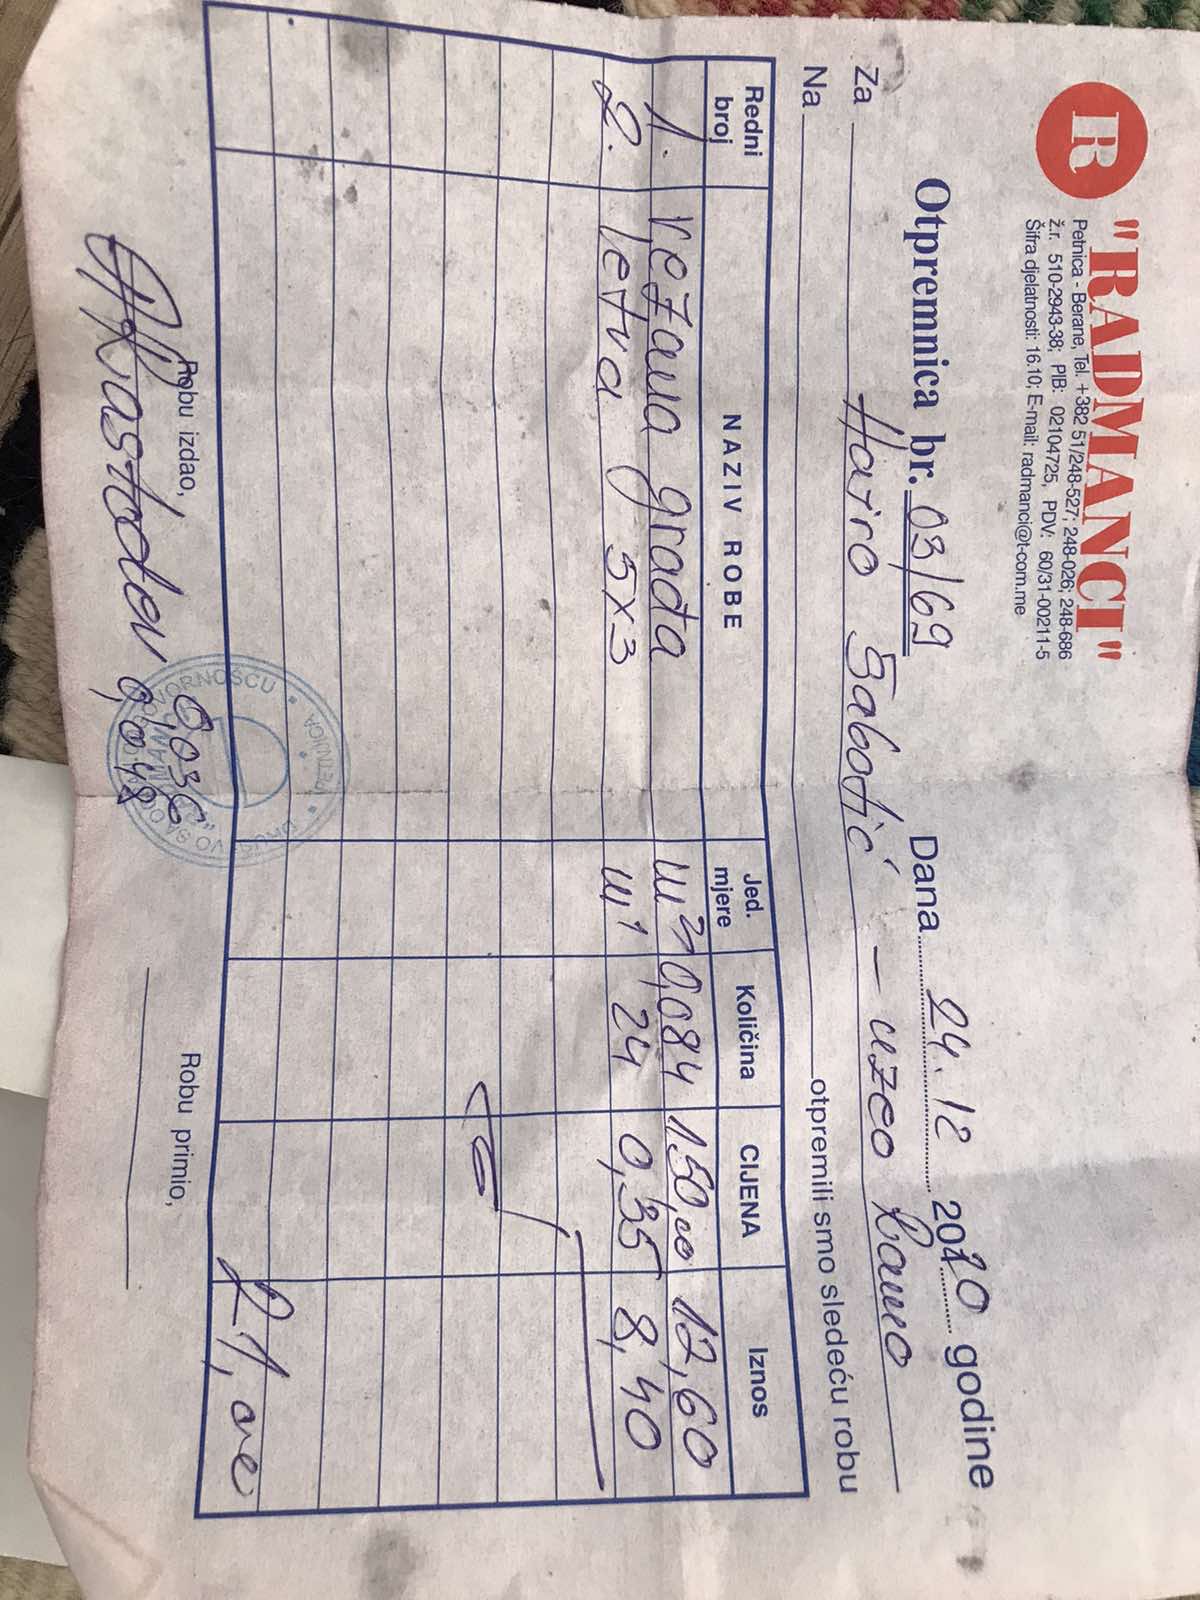 R "RADMANCI"
Petnica - Berane, Tel. +382 51/248-527; 248-026; 248-686
Ž.r. 510-2943-38; PIB: 02104725, PDV: 60/31-00211-5
Šifra djelatnosti: 16.10; E-mail: radmanci@t-com.me
Otpremnica br. 03/69 Dana 24.12 2010 godine
Za Hajro Šabotić - uzeo Ramo
Na otpremili smo sledeću robu
Redni broj NAZIV ROBE Jed. mjere Količina CIJENA Iznos
1. rezana građa m³ 0,084 150,00 12,60
2. letva 5x3 m¹ 24 0,35 8,40
21,00
Robu izdao, Robu primio,
0,036
0,048
PETNJICA